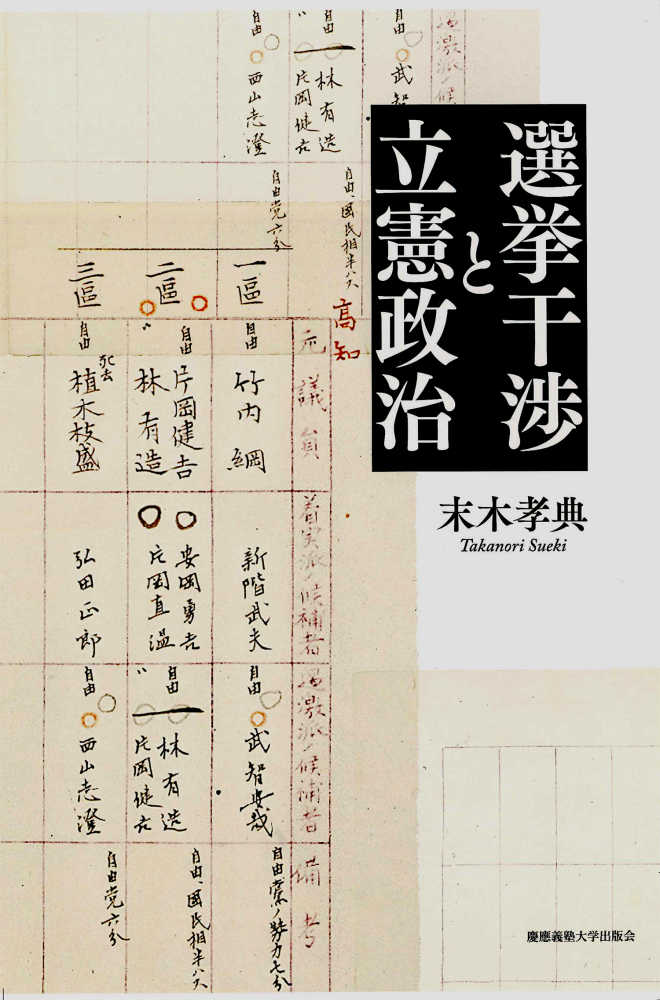 選挙干渉
と
立憲政治
末木孝典
Takanori Sueki
慶應義塾大学出版会
過激派ノ候
自由
武智
自由
〃
林有造
片岡健吉
自由
西山志澄
自由、国民相半ハス
自由党六分
高知
元議員
着実派ノ候補者
過激派ノ候補者
備考
一區
自由
竹内綱
新階武夫
自由
武智安哉
自由党ノ勢力七分
二區
自由
片岡健吉
〃
林有造
安岡勇吉
片岡直温
自由
林有造
〃
片岡健吉
自由、国民相半ハス
三區
自由
死去
植木枝盛
弘田正郎
自由
西山志澄
自由党六分